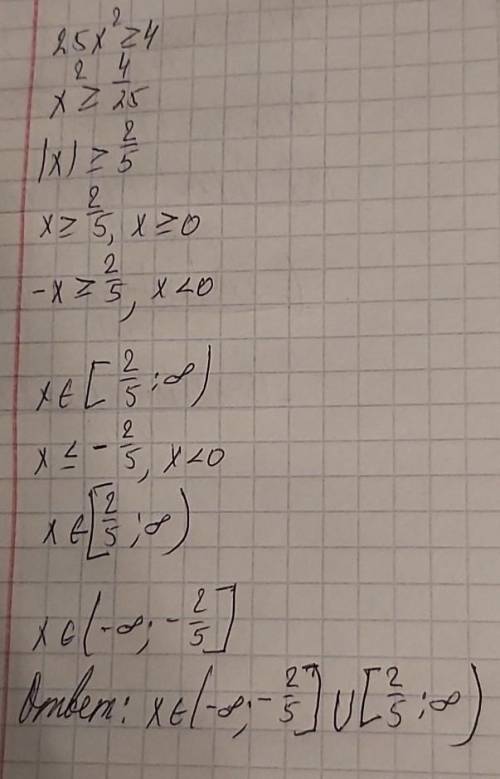 25x² ≥ 4
x² ≥ 4/25
|x| ≥ 2/5
x ≥ 2/5, x ≥ 0
-x ≥ 2/5, x < 0
x ∈ [2/5; ∞)
x ≤ -2/5, x < 0
x ∈ [2/5; ∞)
x ∈ (-∞; -2/5]
Ответ: x ∈ (-∞; -2/5] ∪ [2/5; ∞)